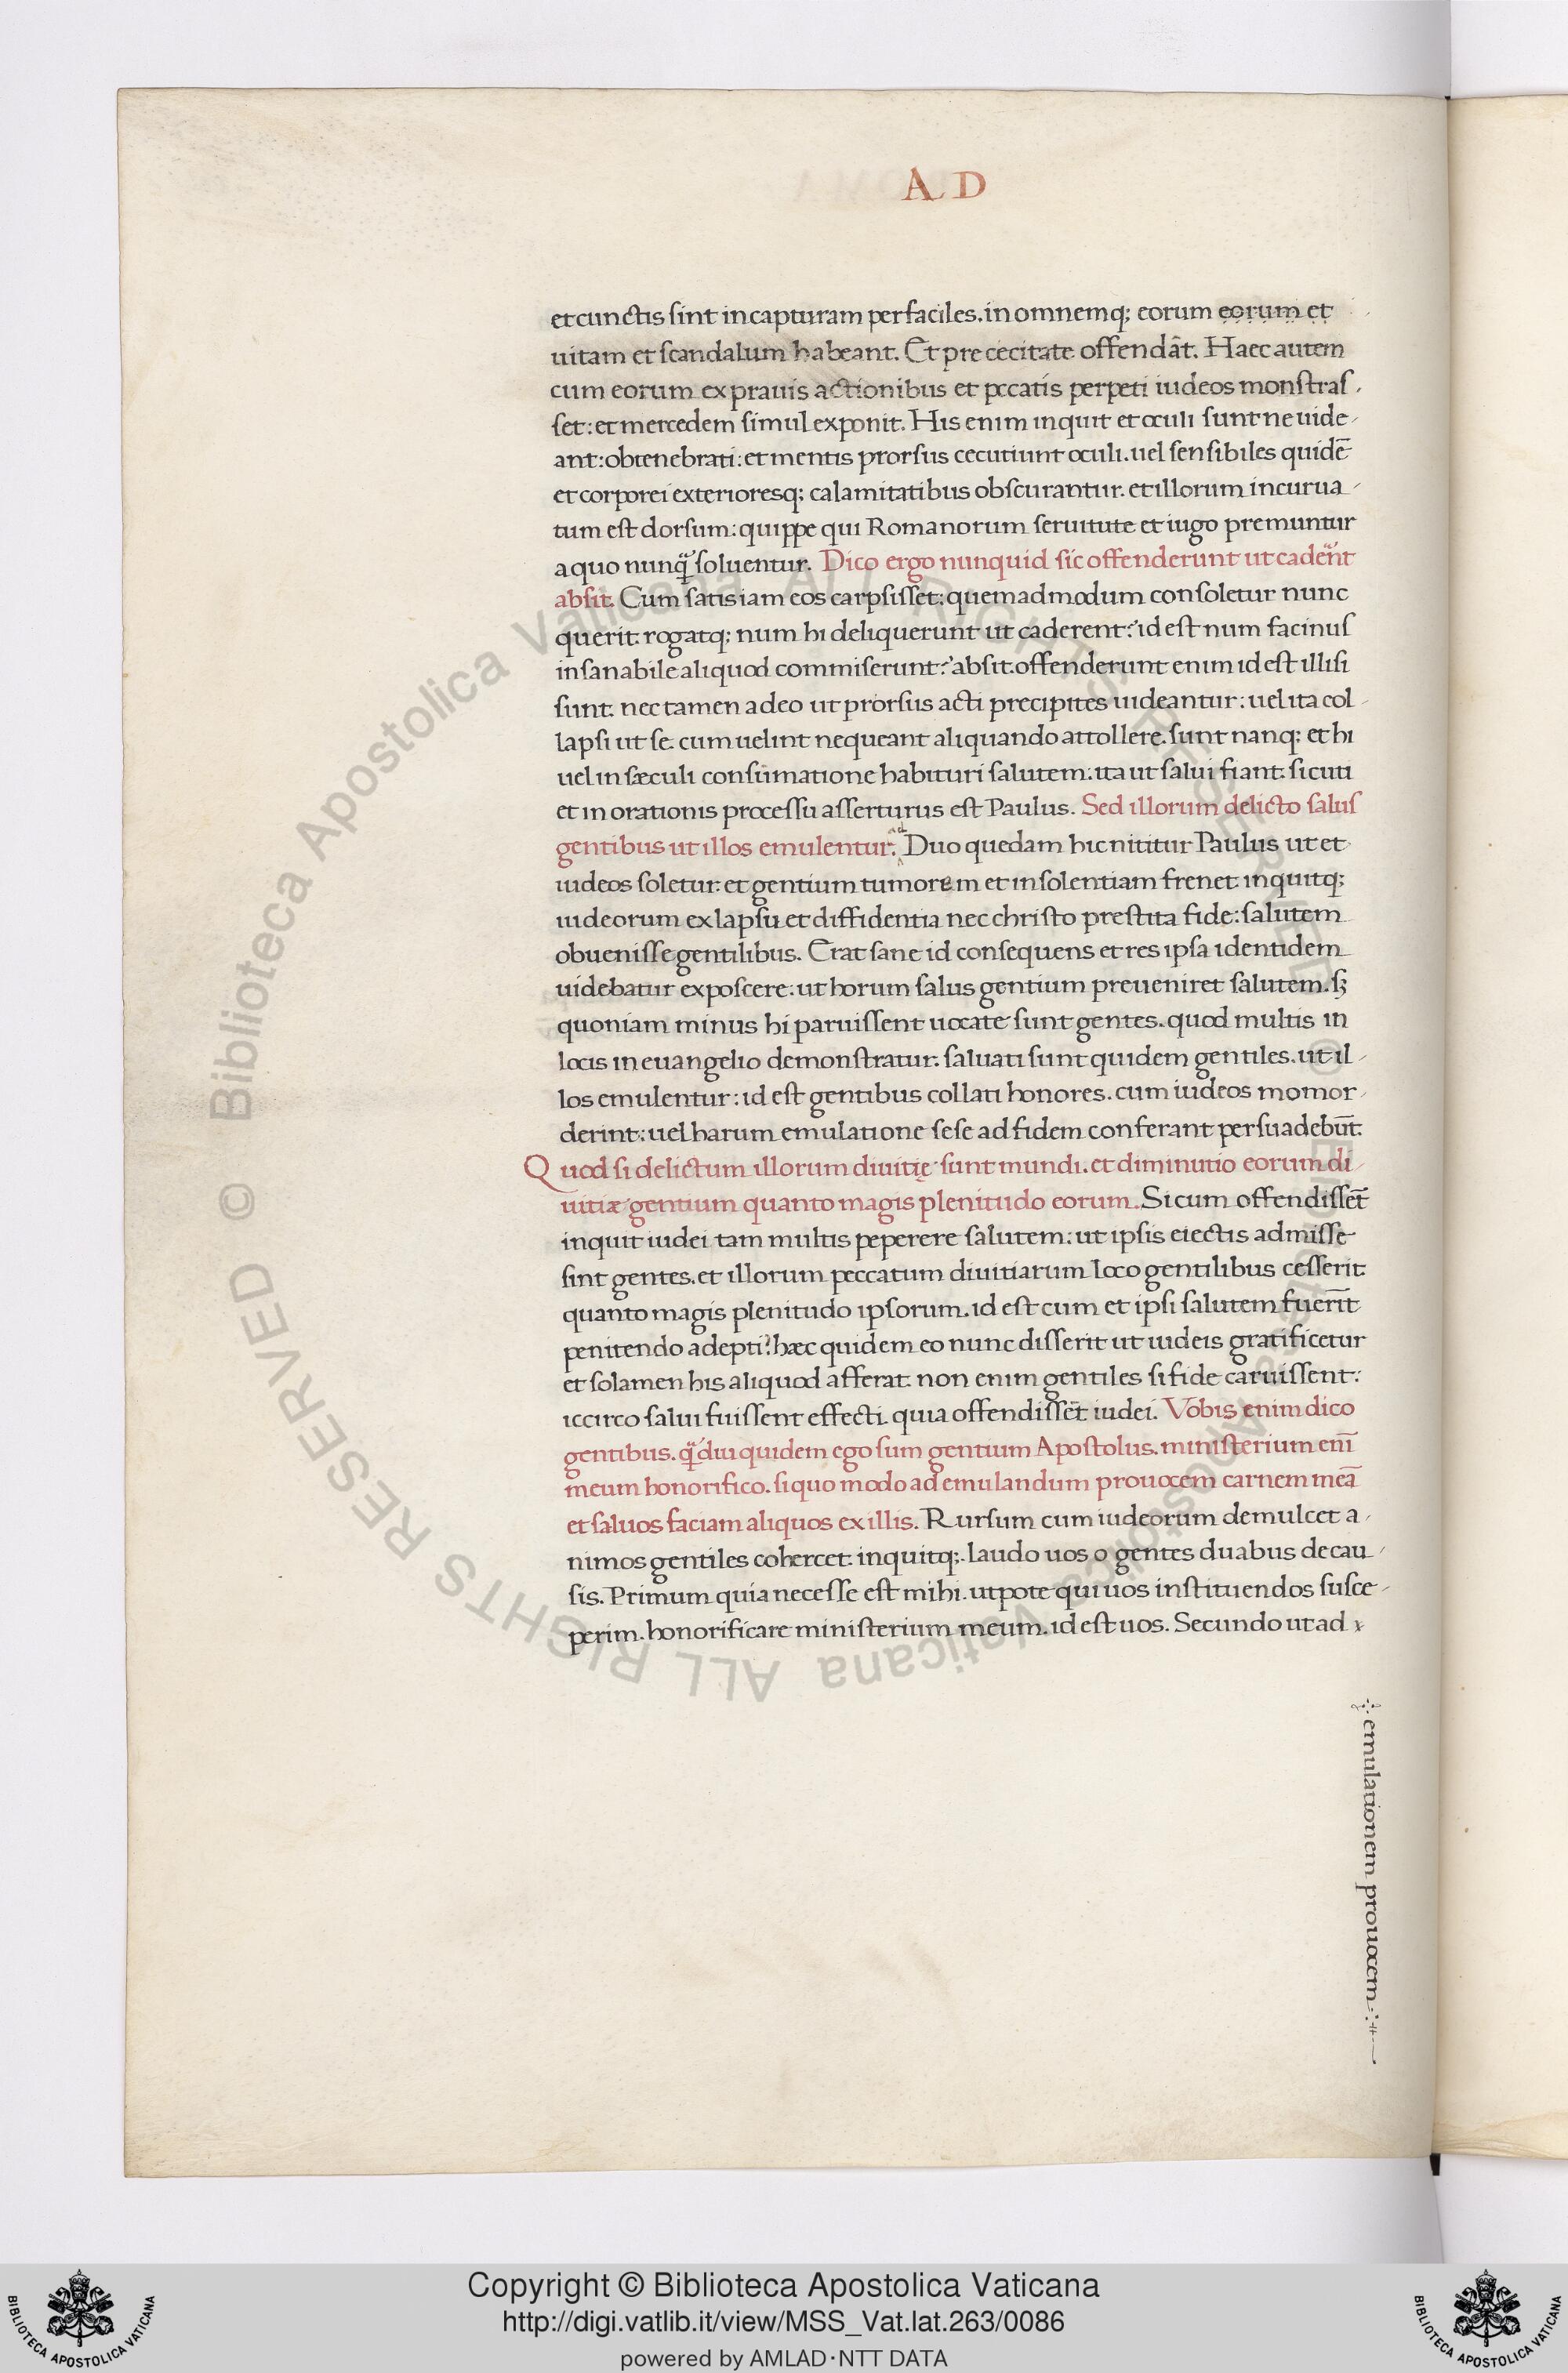 A D
et cunctis sint in capturam perfaciles. in omnemq; eorum eorum et
uitam et scandalum habeant. Et pre cecitate offendãt. Haec autem
cum eorum ex prauis actionibus et pccatis perpeti iudeos monstras,
set: et mercedem simul exponit. His enim inquit et oculi sunt ne uide-
ant: obtenebrati: et mentis prorsus cecutiunt oculi. uel sensibiles quidē
et corporei exterioresq; calamitatibus obscurantur. et illorum incurua-
tum est dorsum: quippe qui Romanorum seruitute et iugo premuntur
a quo nunq̃ soluentur. Dico ergo nunquid sic offenderunt ut cadẽnt
absit. Cum satis iam eos carpsisset: quemadmodum consoletur nunc
querit. rogatq; num hi deliquerunt ut caderent? id est num facinus
insanabile aliquod commiserunt? absit. offenderunt enim id est illisi
sunt. nec tamen adeo ut prorsus acti precipites uideantur: uel ita col-
lapsi ut se cum uelint nequeant aliquando attollere. sunt nanq; et hi
uel in sæculi consūmatione habituri salutem: ita ut salui fiant. sicuti
et in orationis processu asserturus est Paulus. Sed illorum delicto salus
gentibus ut illos emulentur. Duo quedam hic nititur Paulus ut et
iudeos soletur: et gentium tumorem et insolentiam frenet. inquitq;
iudeorum ex lapsu et diffidentia nec christo prestita fide: salutem
obuenisse gentilibus. Erat sane id consequens et res ipsa identidem
uidebatur exposcere: ut horum salus gentium preueniret salutem. sꝫ
quoniam minus hi paruissent uocate sunt gentes. quod multis in
locis in euangelio demonstratur. saluati sunt quidem gentiles. ut il-
los emulentur: id est gentibus collati honores. cum iudeos momor-
derint: uel harum emulatione sese ad fidem conferant persuadebūt.
Quod si delictum illorum diuitię sunt mundi. et diminutio eorum di-
uitiæ gentium quanto magis plenitudo eorum. Si cum offendissēt
inquit iudei tam multis peperere salutem: ut ipsis eiectis admisse
sint gentes. et illorum peccatum diuitiarum loco gentilibus cesserit.
quanto magis plenitudo ipsorum. id est cum et ipsi salutem fuerīt
penitendo adepti? hæc quidem eo nunc disserit ut iudeis gratificetur
et solamen his aliquod afferat. non enim gentiles si fide caruissent:
iccirco salui fuissent effecti. quia offendissēt iudei. Vobis enim dico
gentibus. q̃diu quidem ego sum gentium Apostolus. ministerium enī
meum honorifico. si quo modo ad emulandum prouocem carnem meā
et saluos faciam aliquos ex illis. Rursum cum iudeorum demulcet a-
nimos gentiles cohercet. inquitq;. laudo uos o gentes duabus de cau-
sis. Primum quia necesse est mihi. utpote qui uos instituendos susce-
perim. honorificare ministerium meum. id est uos. Secundo ut ad
emulationem prouocem
© Biblioteca Apostolica Vaticana ALL RIGHTS RESERVED © Biblioteca Apostolica Vaticana ALL RIGHTS RESERVED
Copyright © Biblioteca Apostolica Vaticana
http://digi.vatlib.it/view/MSS_Vat.lat.263/0086
powered by AMLAD·NTT DATA
BIBLIOTECA APOSTOLICA VATICANA
BIBLIOTECA APOSTOLICA VATICANA